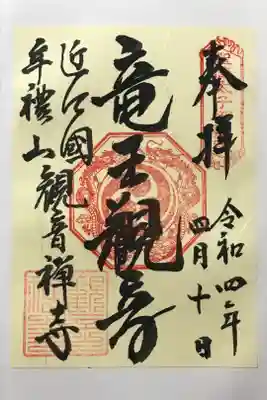 奉拝
令和四年
四月十日
竜王観音
近江國
年禮山観音禅寺